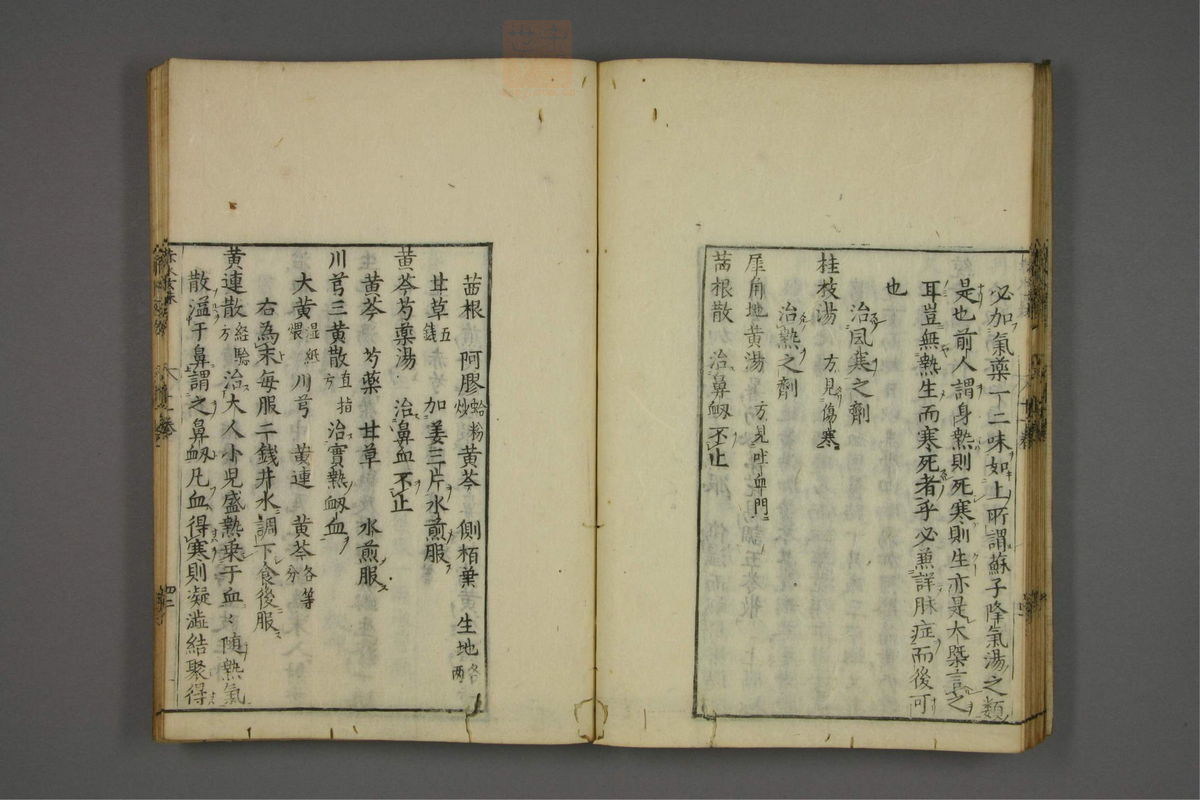 必加氣藥一二味如上所謂蘇子降氣湯之類
是也前人謂身熱則死寒則生亦是大槩言之
耳豈無熱生而寒死者乎必兼詳脉症而後可
也
治風寒之劑
桂枝湯 方見傷寒
治熱之劑
犀角地黄湯 方見吐血門
茜根散 治鼻衂不止
茜根 阿膠蛤粉炒 黄芩 側栢葉 生地各一兩
甘草五錢 加姜三片水煎服
黄芩芍藥湯 治鼻血不止
黄芩 芍藥 甘草 水煎服
川芎三黄散直指方 治實熱衂血
大黄濕紙煨 川芎 黄連 黄芩各等分
右為末每服二錢井水調下食後服
黄連散經驗方 治大人小児盛熱乗于血血隨熱氣
散溢于鼻謂之鼻衂凡血得寒則凝澁結聚得